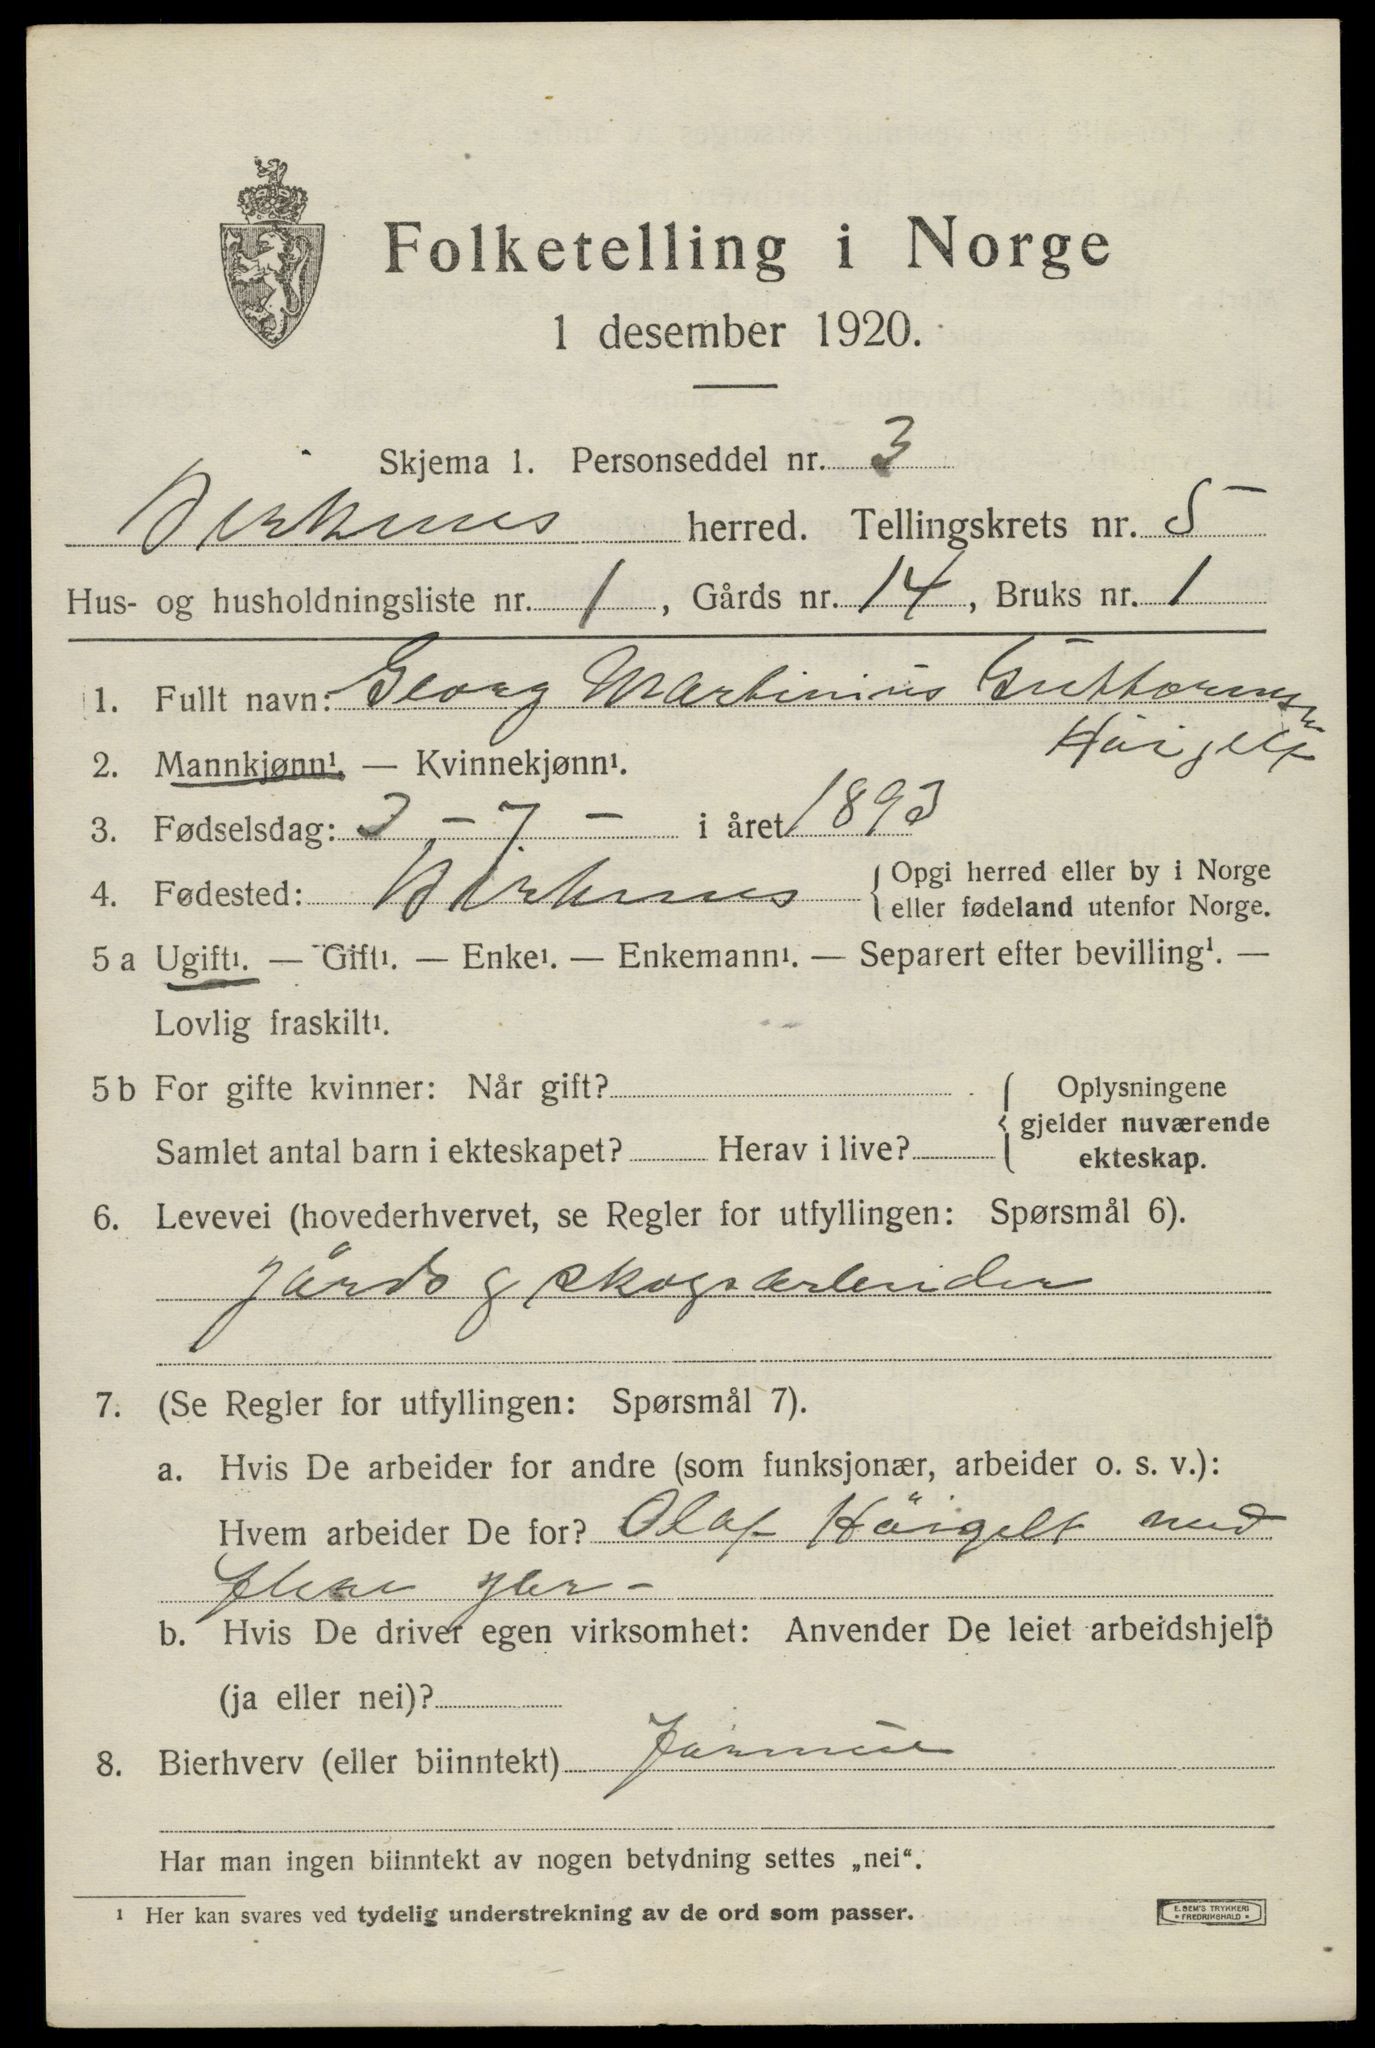 Folketelling i Norge
1 desember 1920.
Skjema 1. Personseddel nr. 3
Birkenes herred. Tellingskrets nr. 5
Hus- og husholdningsliste nr. 1, Gårds nr. 14, Bruks nr. 1
1. Fullt navn: Georg Martinius Guttormsen
Håigelt
2. Mannkjønn¹. — Kvinnekjønn¹.
3. Fødselsdag: 3 - 7 - i året 1893
4. Fødested: Birkenes {Opgi herred eller by i Norge
eller fødeland utenfor Norge.
5 a Ugift¹. — Gift¹. — Enke¹. — Enkemann¹. — Separert efter bevilling¹. —
Lovlig fraskilt¹.
5 b For gifte kvinner: Når gift? { Oplysningene
gjelder nuværende
Samlet antal barn i ekteskapet? Herav i live? ekteskap.
6. Levevei (hovederhvervet, se Regler for utfyllingen: Spørsmål 6).
jårds og skogsarbeider
7. (Se Regler for utfyllingen: Spørsmål 7).
a. Hvis De arbeider for andre (som funksjonær, arbeider o. s. v.):
Hvem arbeider De for? Olaf Håigelt med
flere
b. Hvis De driver egen virksomhet: Anvender De leiet arbeidshjelp
(ja eller nei)?
8. Bierhverv (eller biinntekt)
Har man ingen biinntekt av nogen betydning settes „nei“.
¹ Her kan svares ved tydelig understrekning av de ord som passer.
E. SEM'S TRYKKERI
• FREDRIKSHALD •